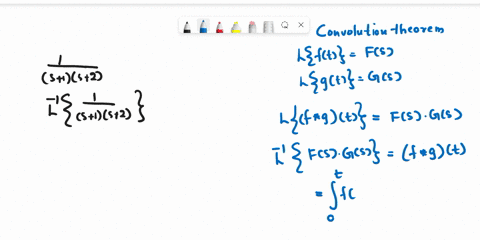 1/((s+1)(s+2))
L⁻¹{1/((s+1)(s+2))}
Convolution theorem
L{f(t)} = F(s)
L{g(t)} = G(s)
L{(f*g)(t)} = F(s).G(s)
L⁻¹{F(s).G(s)} = (f*g)(t)
= ∫₀ᵗ f(